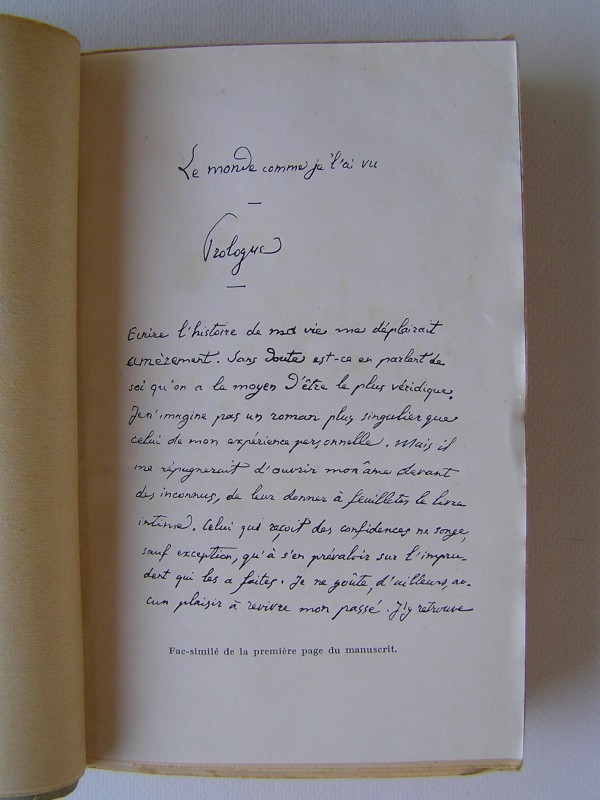 Le monde comme je l'ai vu
—
Prologue
—
Ecrire l'histoire de ma vie me déplairait
amèrement. Sans doute est-ce en parlant de
soi qu'on a le moyen d'être le plus véridique.
Je n'imagine pas un roman plus singulier que
celui de mon expérience personnelle. Mais il
me répugnerait d'ouvrir mon âme devant
des inconnus, de leur donner à feuilleter le livre
intime. Celui qui reçoit des confidences ne songe,
sauf exception, qu'à s'en prévaloir sur l'impru-
dent qui les a faites. Je ne goûte, d'ailleurs, au-
cun plaisir à revivre mon passé. J'y retrouve
Fac-similé de la première page du manuscrit.